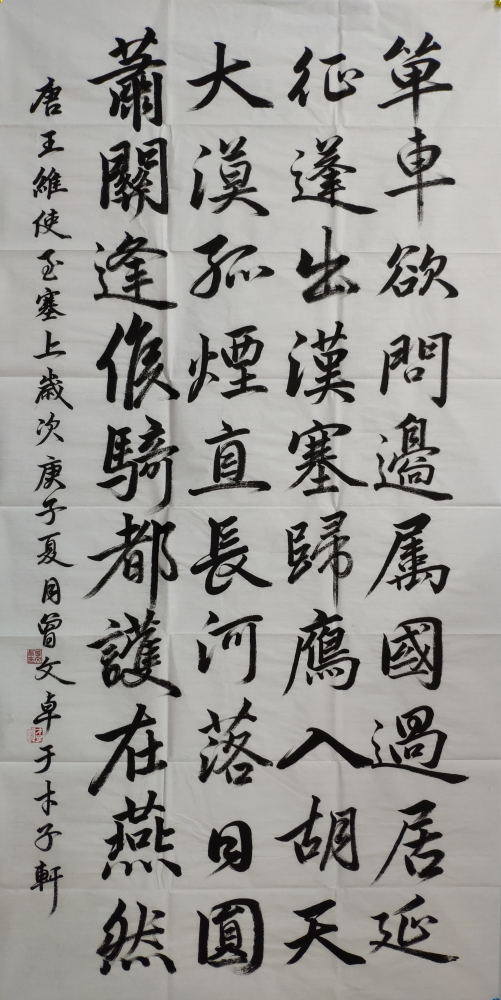 單車欲問邊屬國過居延
征蓬出漢塞歸鴈入胡天
大漠孤煙直長河落日圓
蕭關逢候騎都護在燕然
唐王維使至塞上歲次庚子夏月曾文卓于木子軒